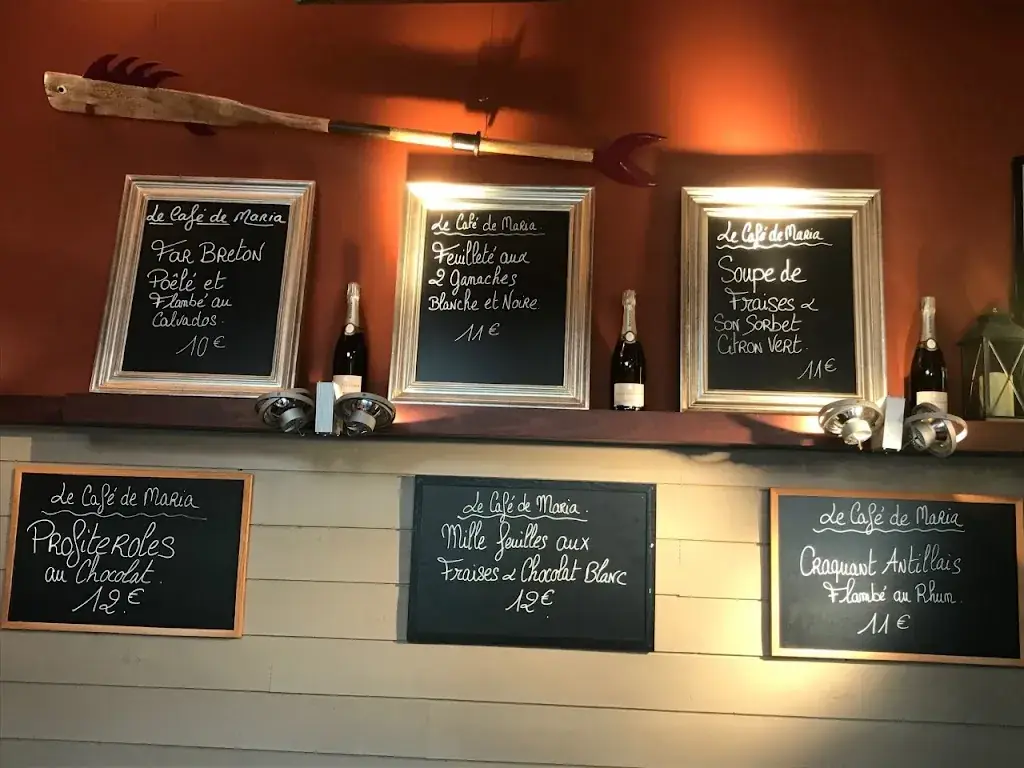 Le Café de Maria
Far Breton
Poêlé et
Flambé au
Calvados.
10€
Le Café de Maria.
Feuilleté aux
2 Ganaches
Blanche et Noire
11€
Le Café de Maria
Soupe de
Fraises &
Son Sorbet
Citron Vert.
11€
Le Café de Maria
Profiteroles
au Chocolat.
12€
Le Café de Maria.
Mille feuilles aux
Fraises & Chocolat Blanc
12€
Le Café de Maria
Craquant Antillais
Flambé au Rhum.
11€